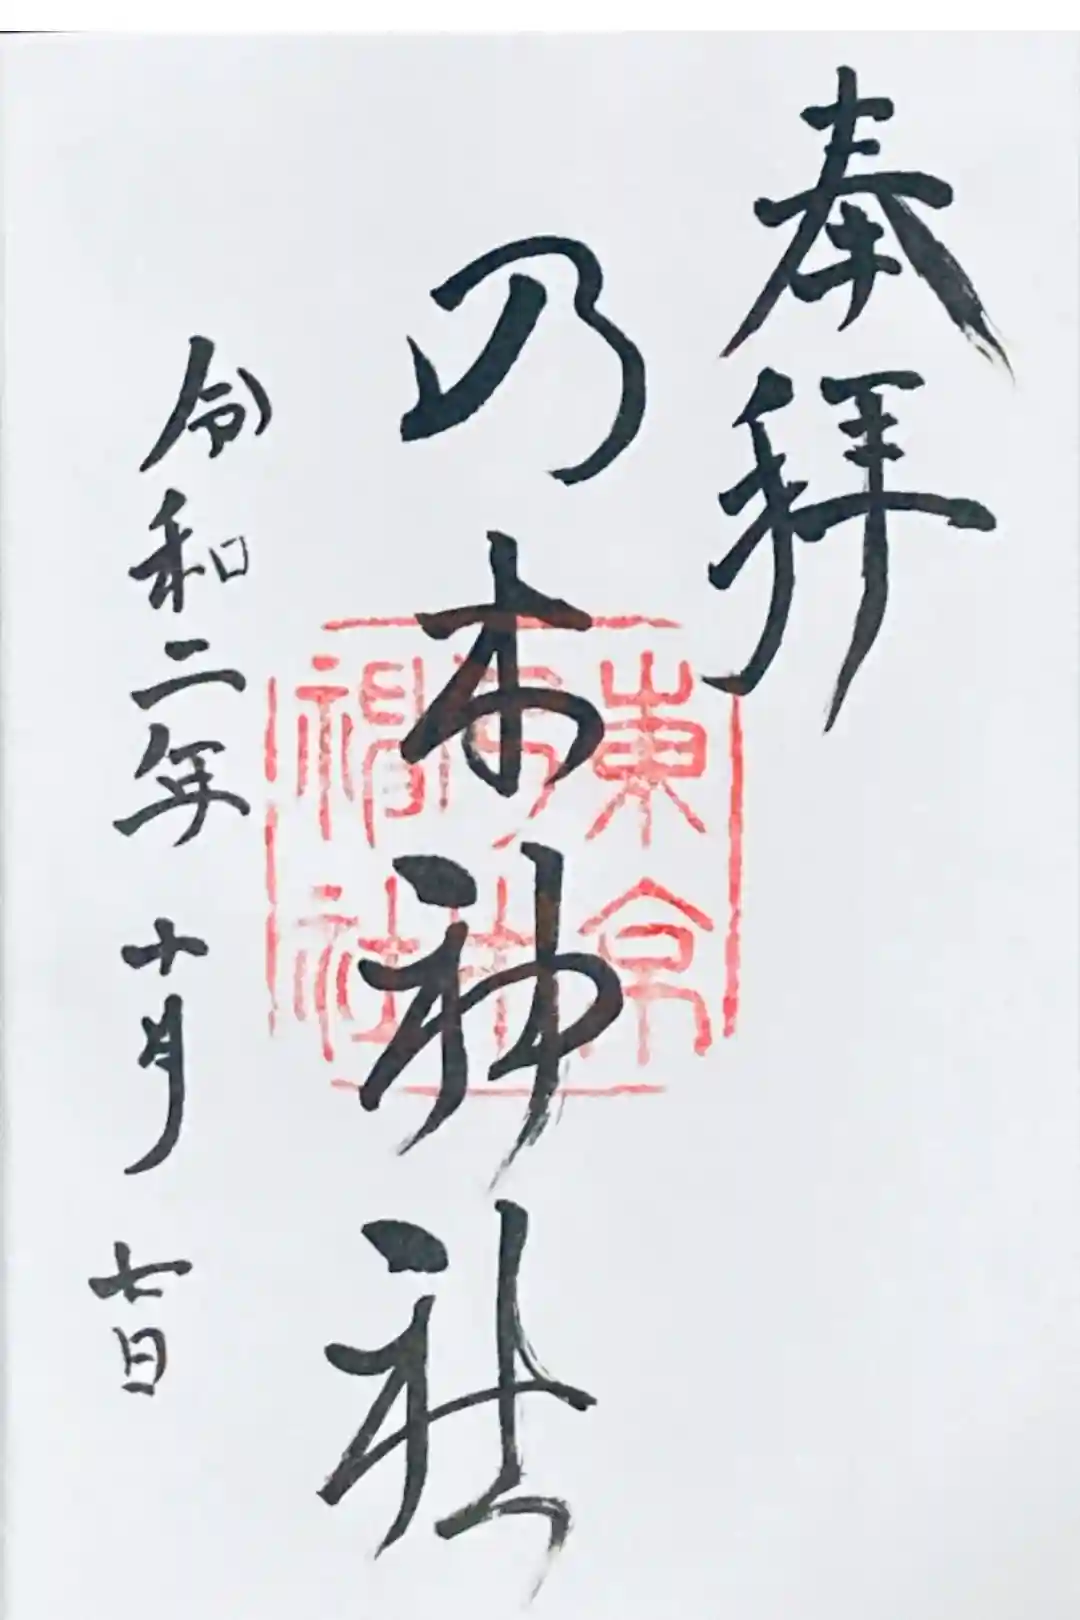 奉拝
乃木神社
東京
乃木
神社
令和二年 十月 七日